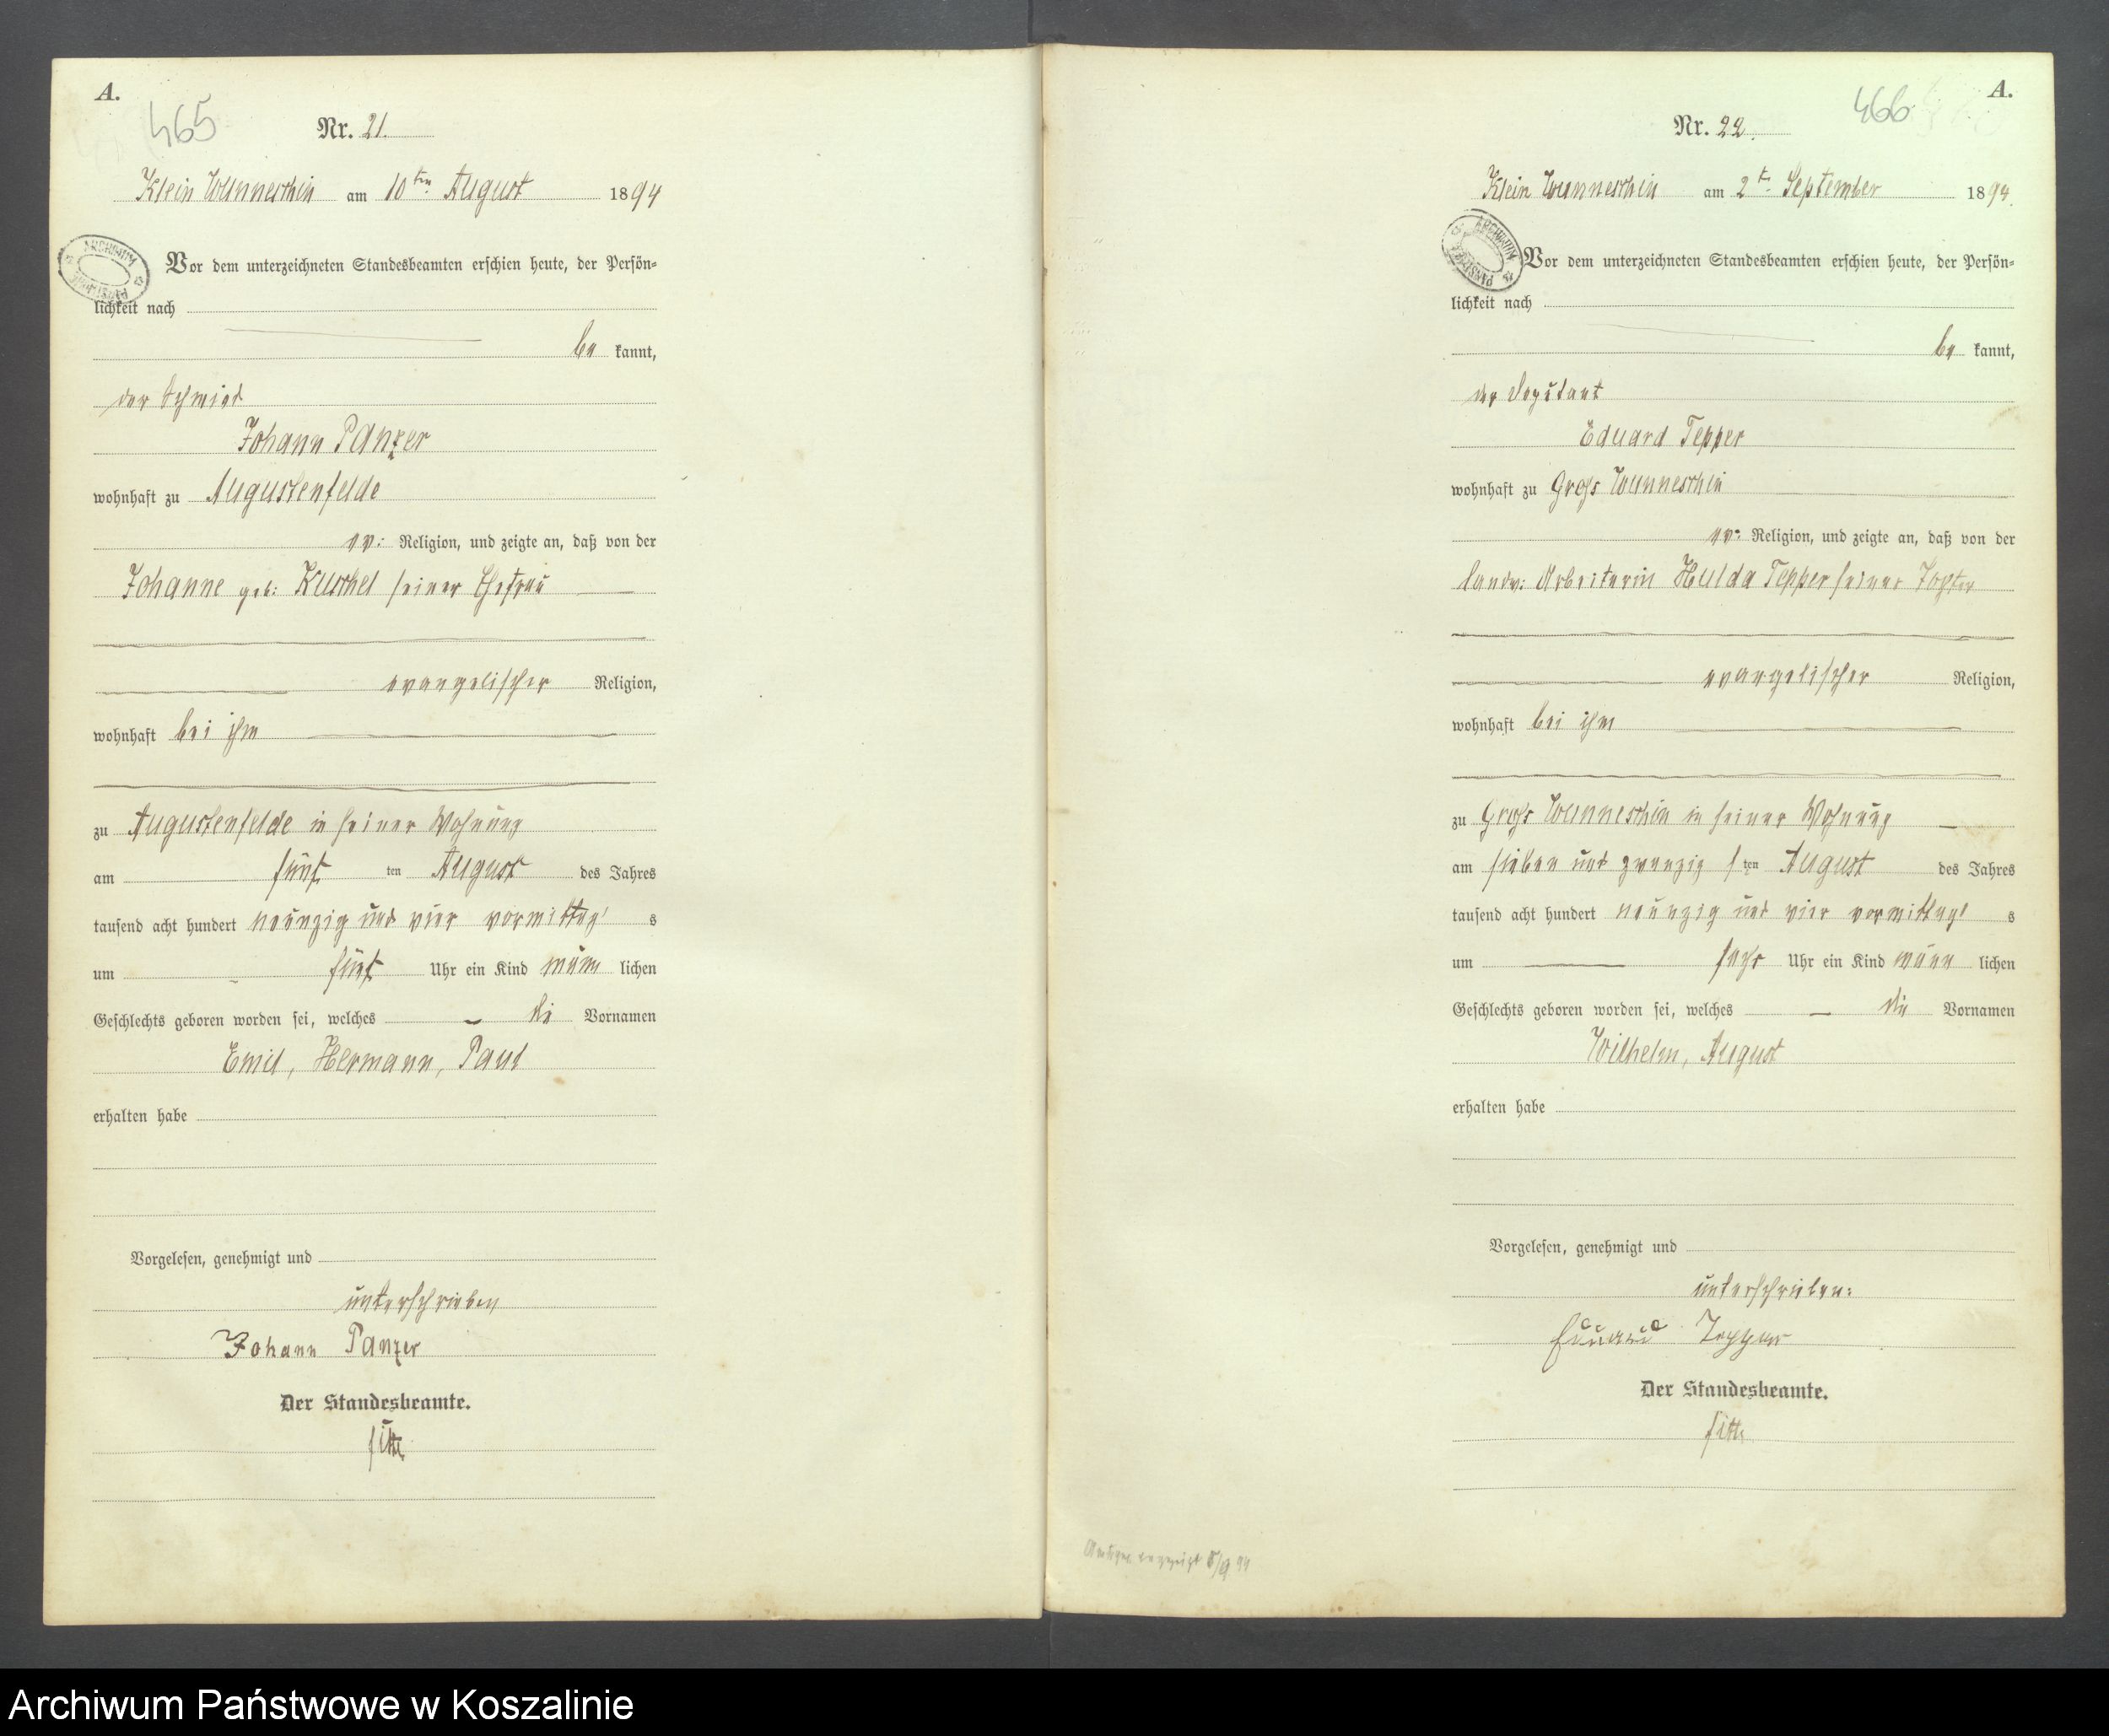 A.
465
Nr. 21.
Klein Wunneschin am 10ten August 1894
ARCHIWUM
Vor dem unterzeichneten Standesbeamten erschien heute, der Persön=
lichkeit nach
be kannt,
der Schmied
Johann Panzer
wohnhaft zu Augustenfelde
ev: Religion, und zeigte an, daß von der
Johanne geb: Kuschel seiner Ehefrau
evangelischer Religion,
wohnhaft bei ihm
zu Augustenfelde in seiner Wohnung
am fünf ten August des Jahres
tausend acht hundert neunzig und vier vormittag s
um fünf Uhr ein Kind männ lichen
Geschlechts geboren worden sei, welches die Vornamen
Emil, Hermann, Paul
erhalten habe
Vorgelesen, genehmigt und
unterschrieben
Johann Panzer
Der Standesbeamte.
A.
466
Nr. 22.
Klein Wunneschin am 2t. September 1894.
ARCHIWUM
Vor dem unterzeichneten Standesbeamten erschien heute, der Persön=
lichkeit nach
be kannt,
der Deputant
Eduard Tepper
wohnhaft zu Gross Wunneschin
ev: Religion, und zeigte an, daß von der
landw: Arbeiterin Hulda Tepper seiner Tochter
evangelischer Religion,
wohnhaft bei ihm
zu Gross Wunneschin in seiner Wohnung
am sieben und zwanzig s ten August des Jahres
tausend acht hundert neunzig und vier vormittag s
um sechs Uhr ein Kind männ lichen
Geschlechts geboren worden sei, welches die Vornamen
Wilhelm, August
erhalten habe
Vorgelesen, genehmigt und
unterschrieben:
Eduard Tepper
Der Standesbeamte.
angezeigt 5/9 94
Archiwum Państwowe w Koszalinie